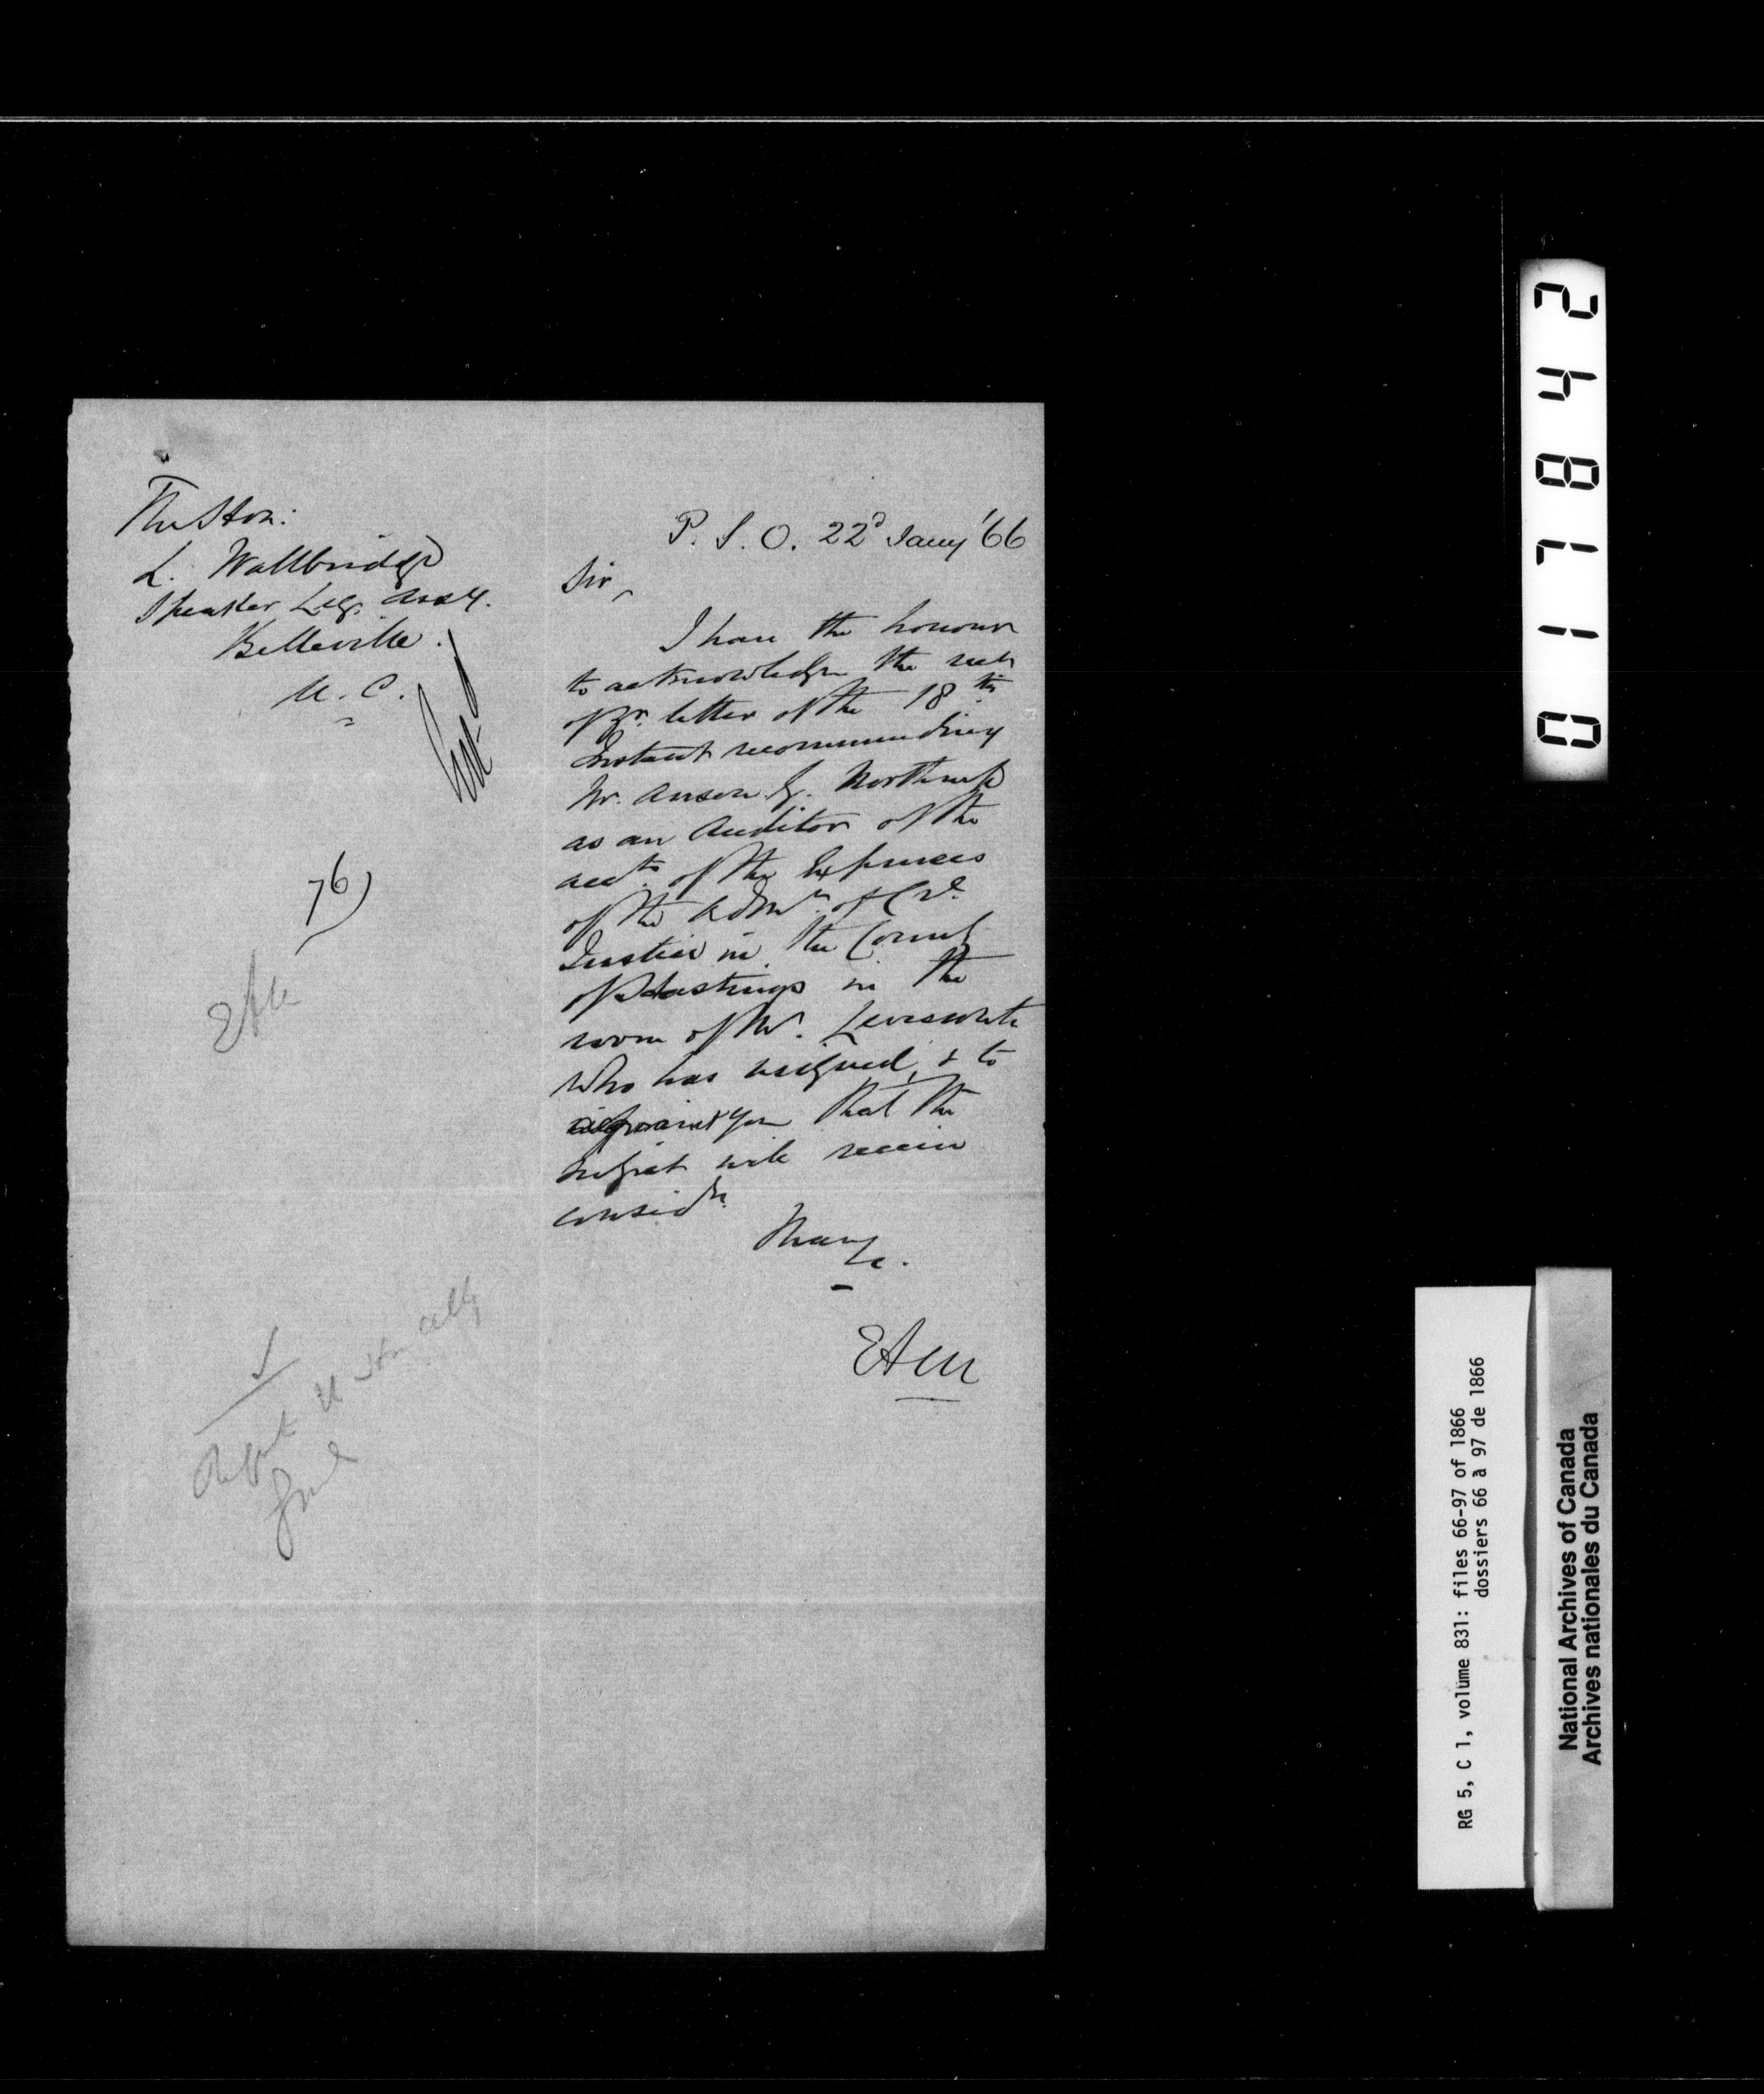 The Hon:
L. Wallbridge
Speaker Leg. Assy.
Belleville.
U. C.
76)
P. S. O. 22d Jany '66
Sir,
I have the honour
to acknowledge the rect
of yr. letter of the 18th
Instant recommending
Mr. Anson G. Northrup
as an Auditor of the
accts. of the Expenses
of the Admn. of Crl.
Justice in the County
of Hastings in the
room of Mr.
who has resigned, & to
acquaint you that the
subject will receive
considn.
I have
&c.
EAM
EAM
017842
RG 5, C 1, volume 831: files 66-97 of 1866
dossiers 66 à 97 de 1866
National Archives of Canada
Archives nationales du Canada